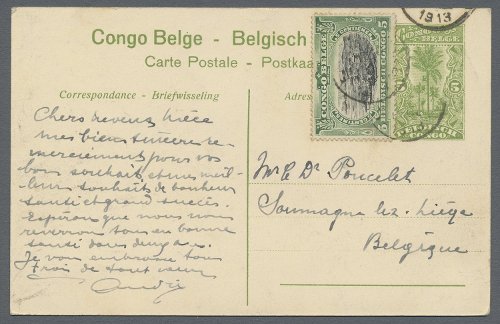 1913
Congo Belge - Belgisch
Carte Postale - Postkaa
Correspondance - Briefwisseling
Adres
CONGO BELGE
BELGISCH CONGO
5
5
BELGISCH
CONGO
Chers neveux nièce
mes bien sincère re-
merciement pour vos
bon souhait, et mes meil-
leur souhait de bonheur
santé et grand succès.
Espéron que nous nous
reverron tous en bonne
santé dans deux an.
Je vous embrasse tous
trois de tout cœur
Mr le Dr Poucelet
Soumagne lez. Liége
Belgique